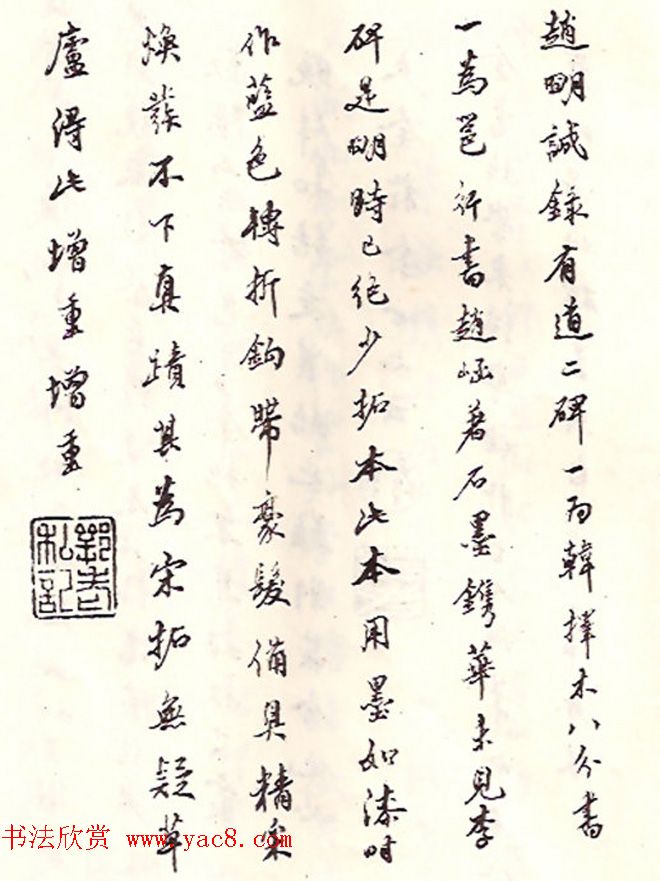 趙明誠錄有道二碑一为韓擇木八分書
一為邕行書趙崡著石墨鐫華未見李
碑是明時已絕少拓本此本用墨如漆时
作藍色轉折鉤帶豪髮備具精采
煥發不下真蹟其為宋拓無疑草
廬得此增重增重
私記
书法欣赏 www.yac8.com